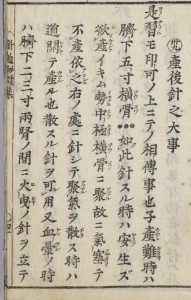 産後針之大事
是習モ印可ノ上ニテノ相傳事也子産難時ハ
臍下五寸横骨●●●如此針スル時ハ安生ズ
欲産イキム勢中極横骨ニ聚故ニ氣塞テ
不産依之右ノ處ニ針シテ聚氣ヲ散ス時ハ
道開テ産ル也散スル針ヲ可用又血暈ノ時
ハ臍下二三寸兩腎ノ間ニ火曳ノ針ヲ立テ